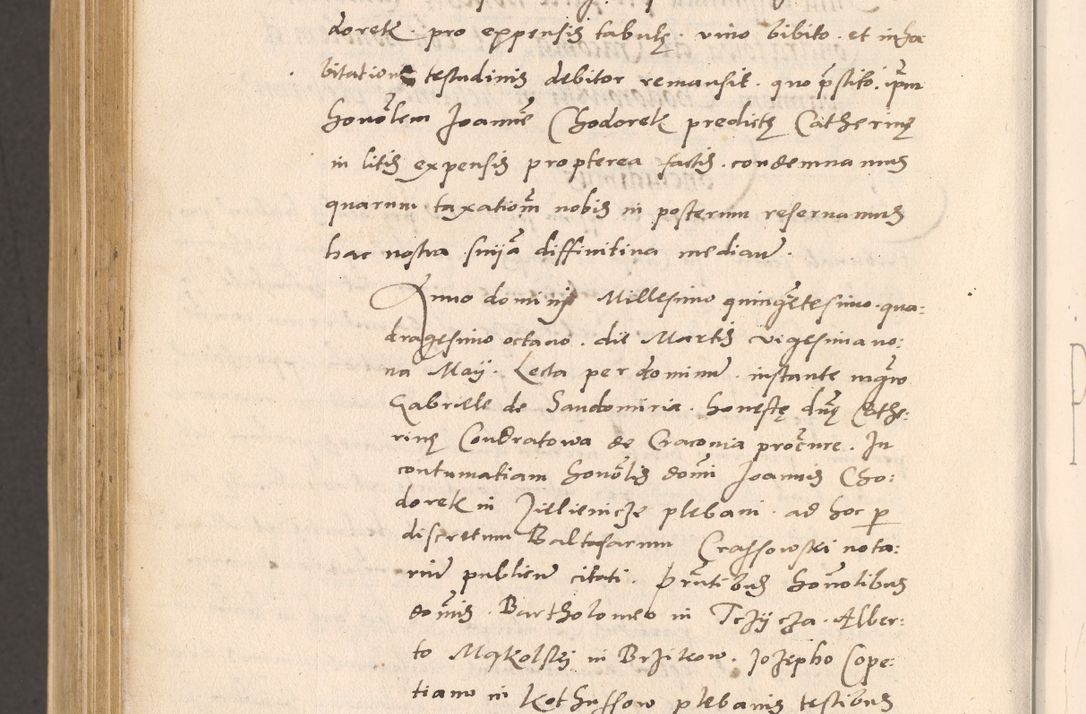 dorek pro expensis tabulę vino bibito et inha
bitatione testudinis debitor remansit quo pstito ipm
honolem Joannē Chodorek predictę Catherinę
in litis expensis propterea factis condemnamus
quarum taxationem nobis in posterum reseruamus
hac nostra snia diffinitiua median
Anno dominj Millesimo quingētesimo qua:
dragesimo octauo die Martis vigesima no:
na Maij Lecta per dominū instante mgro
Gabriele de Sandomiria honestę dnę Cathe:
rinę Condratowa de Cracouia procure In
contumatiam honolis domi Joannis Cho:
dorek in plebani ad hoc p
discretum Baltasarum Crassowski nota:
riū publicū citati prntibus honolibus
domis Bartholomeo in Tczycza Alber:
to in Brzikow Jozepho Cope:
tiano in plebanis testibus